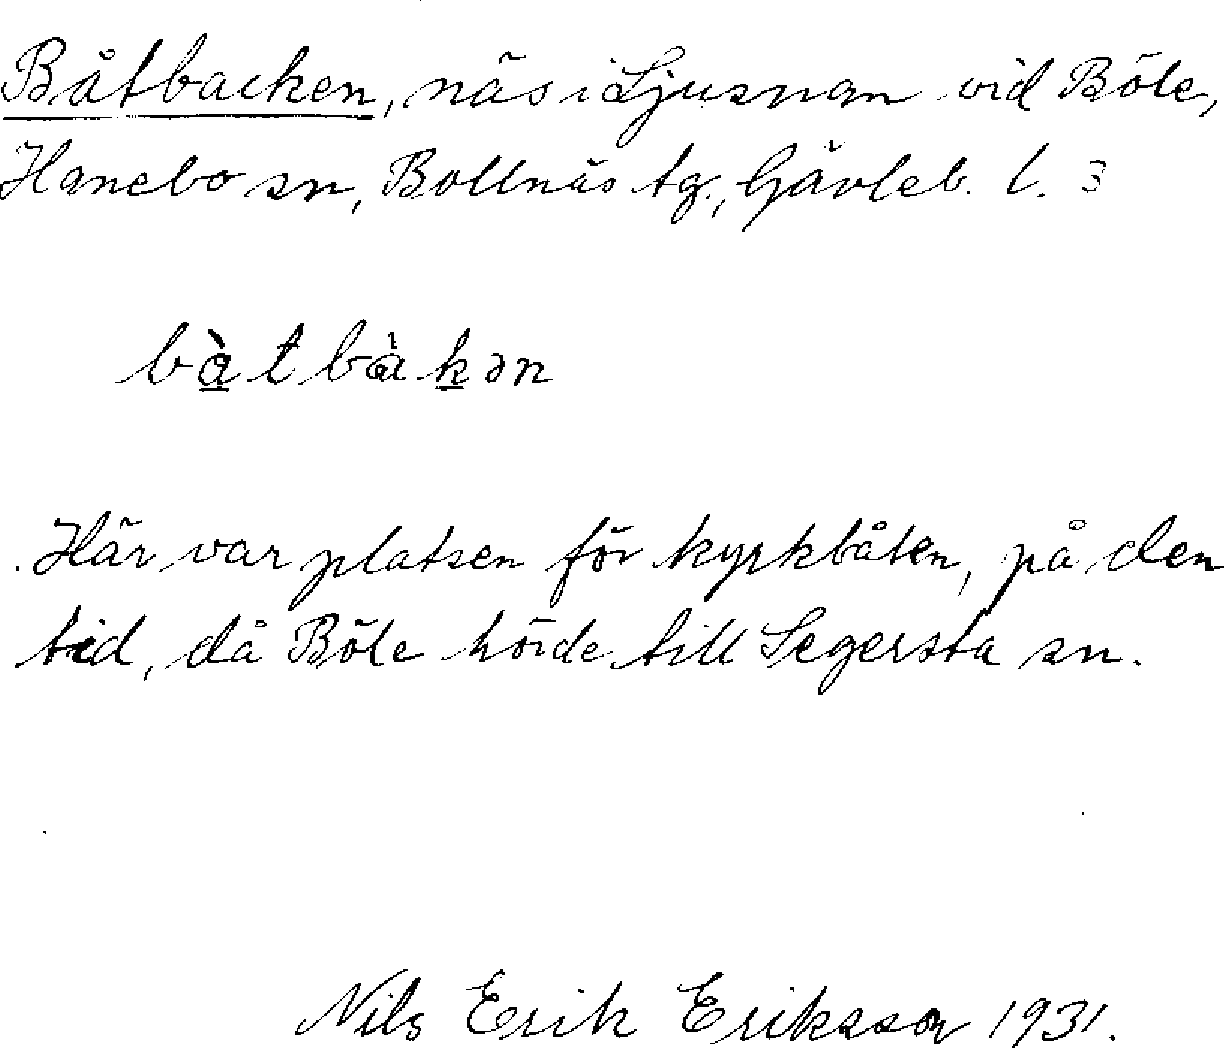 Båtbacken, näs i Ljusnan vid Böle,
Hanebo sn, Bollnäs tg., Gävleb. l. 3
bàtbàkən
Här var platsen för kyrkbåten, på den
tid, då Böle hörde till Segersta sn.
Nils Erik Eriksson 1931.